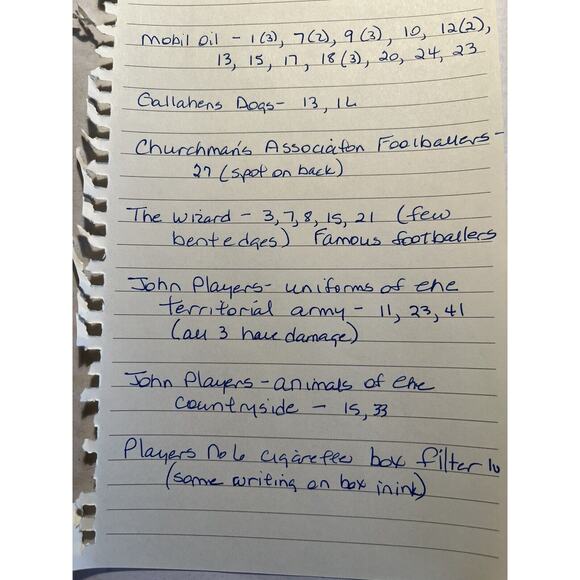 Mobil Oil - 1(3), 7(2), 9(3), 10, 12(2),
13, 15, 17, 18(3), 20, 24, 23
Gallahens Dogs - 13, 14
Churchman's Association Foolballers -
27 (spot on back)
The Wizard - 3, 7, 8, 15, 21 (few
bent edges) Famous footballers
John Players - uniforms of the
territorial army - 11, 23, 41
(all 3 have damage)
John Players - animals of the
countryside - 15, 33
Players No 6 cigarettes box filter 10
(some writing on box in ink)